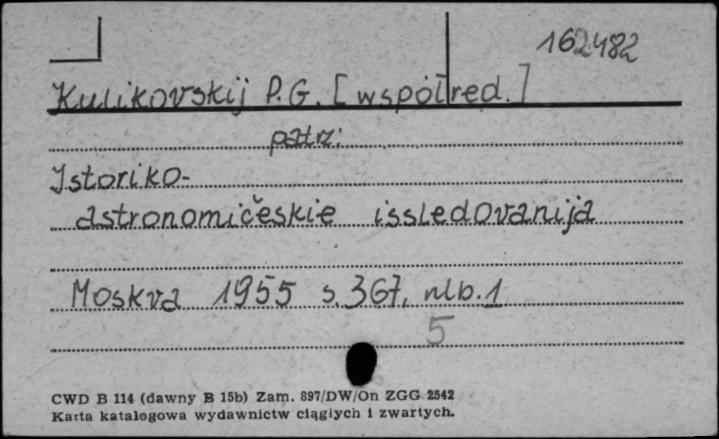 162482
Kulikovskij P.G. [współred.]
patrz:
Istoriko-
astronomičeskie issledovanija
Moskva 1955 s. 367, nlb. 1
5
CWD B 114 (dawny B 15b) Zam. 897/DW/On ZGG 2542
Karta katalogowa wydawnictw ciągłych i zwartych.